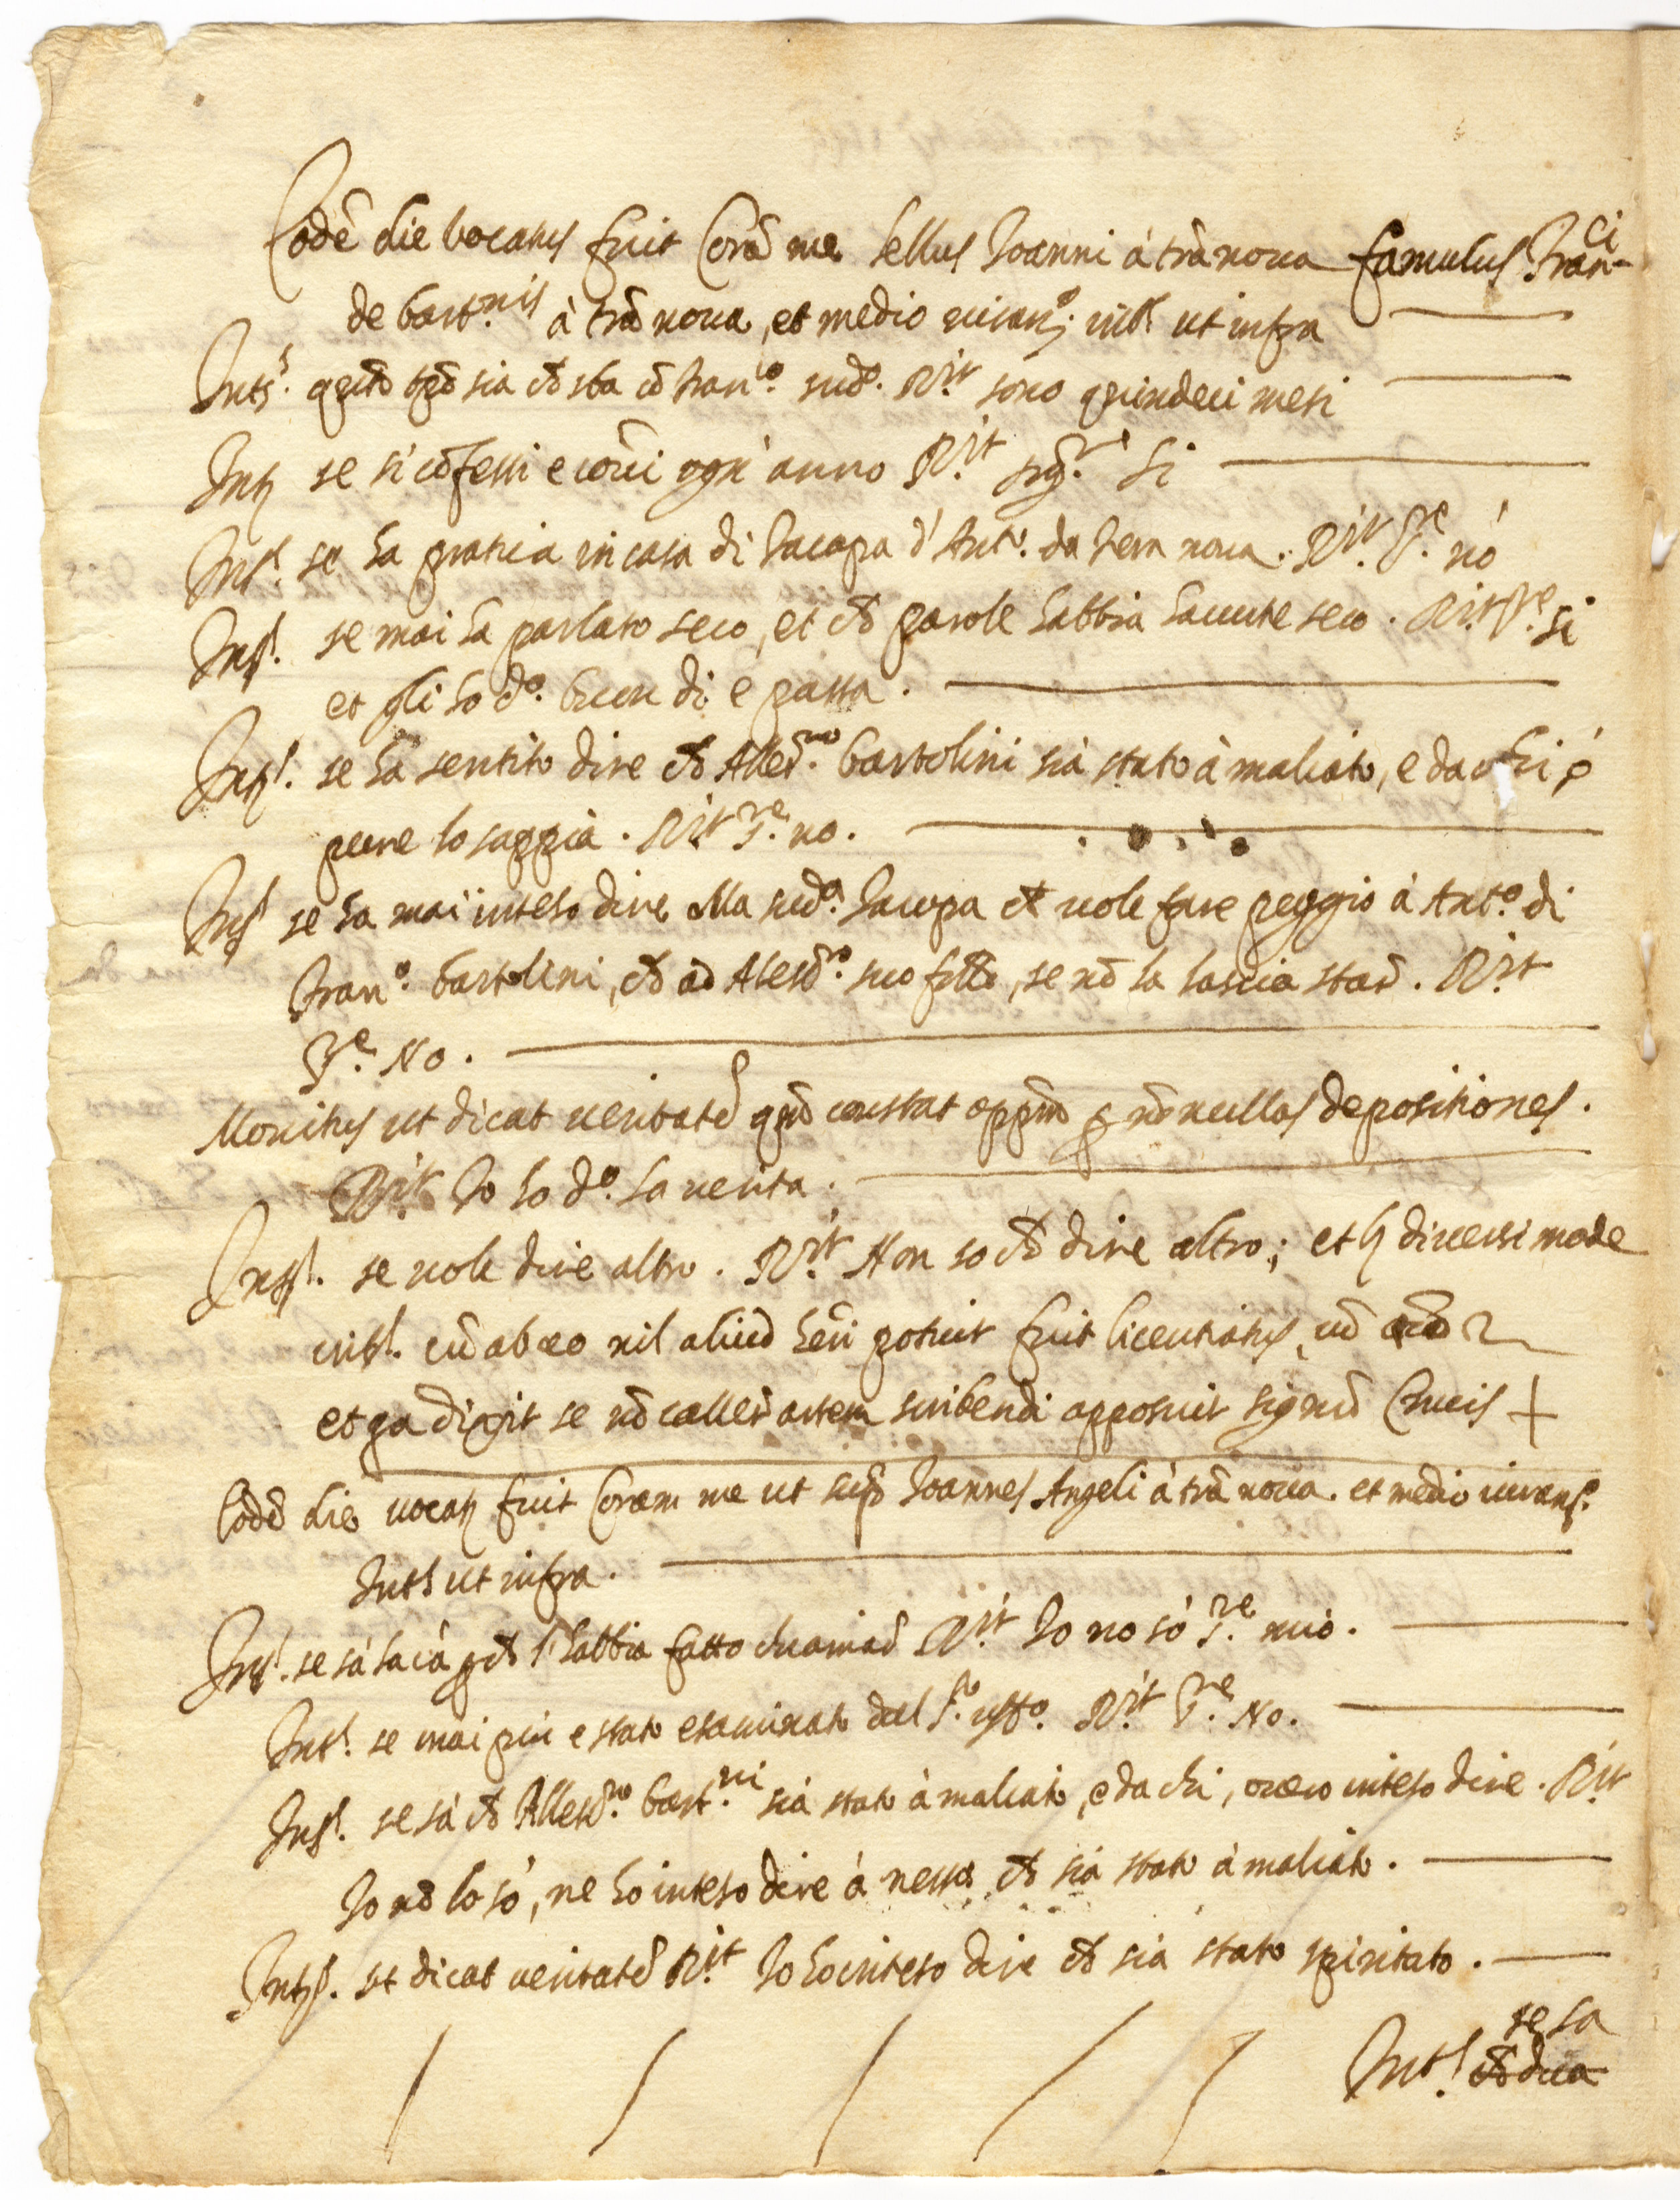 Eodē die vocatus fuit Corā me Lellus Joanni à trā noua famulus Fran^ci
de bart.^nis à trā noua, et medio iuram.^o int.^s ut infra
Int.^s quāto tpō sia chē sta cō Fran.^co sud.^o R.^it sono quindeci mesi
Int.^s se si cōfessi e cōichi ogn'anno R.^it sig.^re si
Int.^s se ha pratica in casa di Jacopa d'Ant.^o da terra noua. R.^it P.^re nò
Int.^s se mai ha parlato seco, et chē parole habbia hauute seco. R.^it P.^re si
et gli ho d.^o buon di e passa.
Int.^s se ha sentito dire chē Alles.^ro bartolini sia stato à maliato, e da chi ò
pure lo sappia. R.^it P.^re no.
Int.^s se ha mai inteso dire alla sud.^a Jacopa chē uole fare peggio à Ant.^o di
Fran.^o bartolini, chē ad Alesd.^ro suo fratō, se nō la lascia starē. R.^it
P.^re No.
Monitus ut dicat ueritatē quō constat oppm̄ p nōnullas depositiones.
R.^it Io ho d.^o la uerita.
Int.^s se uole dire altro. R.^it Non so chē dire altro; et ḥ diuersi mode
int.^s cū ab eo nil aliud hēri potuit fuit licentiatus, cū
et qa dixit se nō callerē artem scribendi apposuit signū Crucis +
Eodē die uocatus fuit Coram me ut sup̄ Joannes Angeli à trā noua. et medio iuram.^o
Int.^s ut infra.
Int.^s se sà la cā pchē l'habbia fatto chiamarē R.^it Io no sò P.^re mio.
Int.^s se mai piu e stato esaminato dal S.^to uff.^o R.^it P.^re No.
Int.^s se sà chē Allesd.^ro bart.^ni sia stato à maliato, e da chi, ouero inteso dire. R.^it
Io nō lo sò, ne ho inteso dire à nesso chē sia stato à maliato.
Int.^s ut dicat ueritatē R.^it Io ho inteso dire chē sia stato spiritato.
se ha
Int.^s chē dica